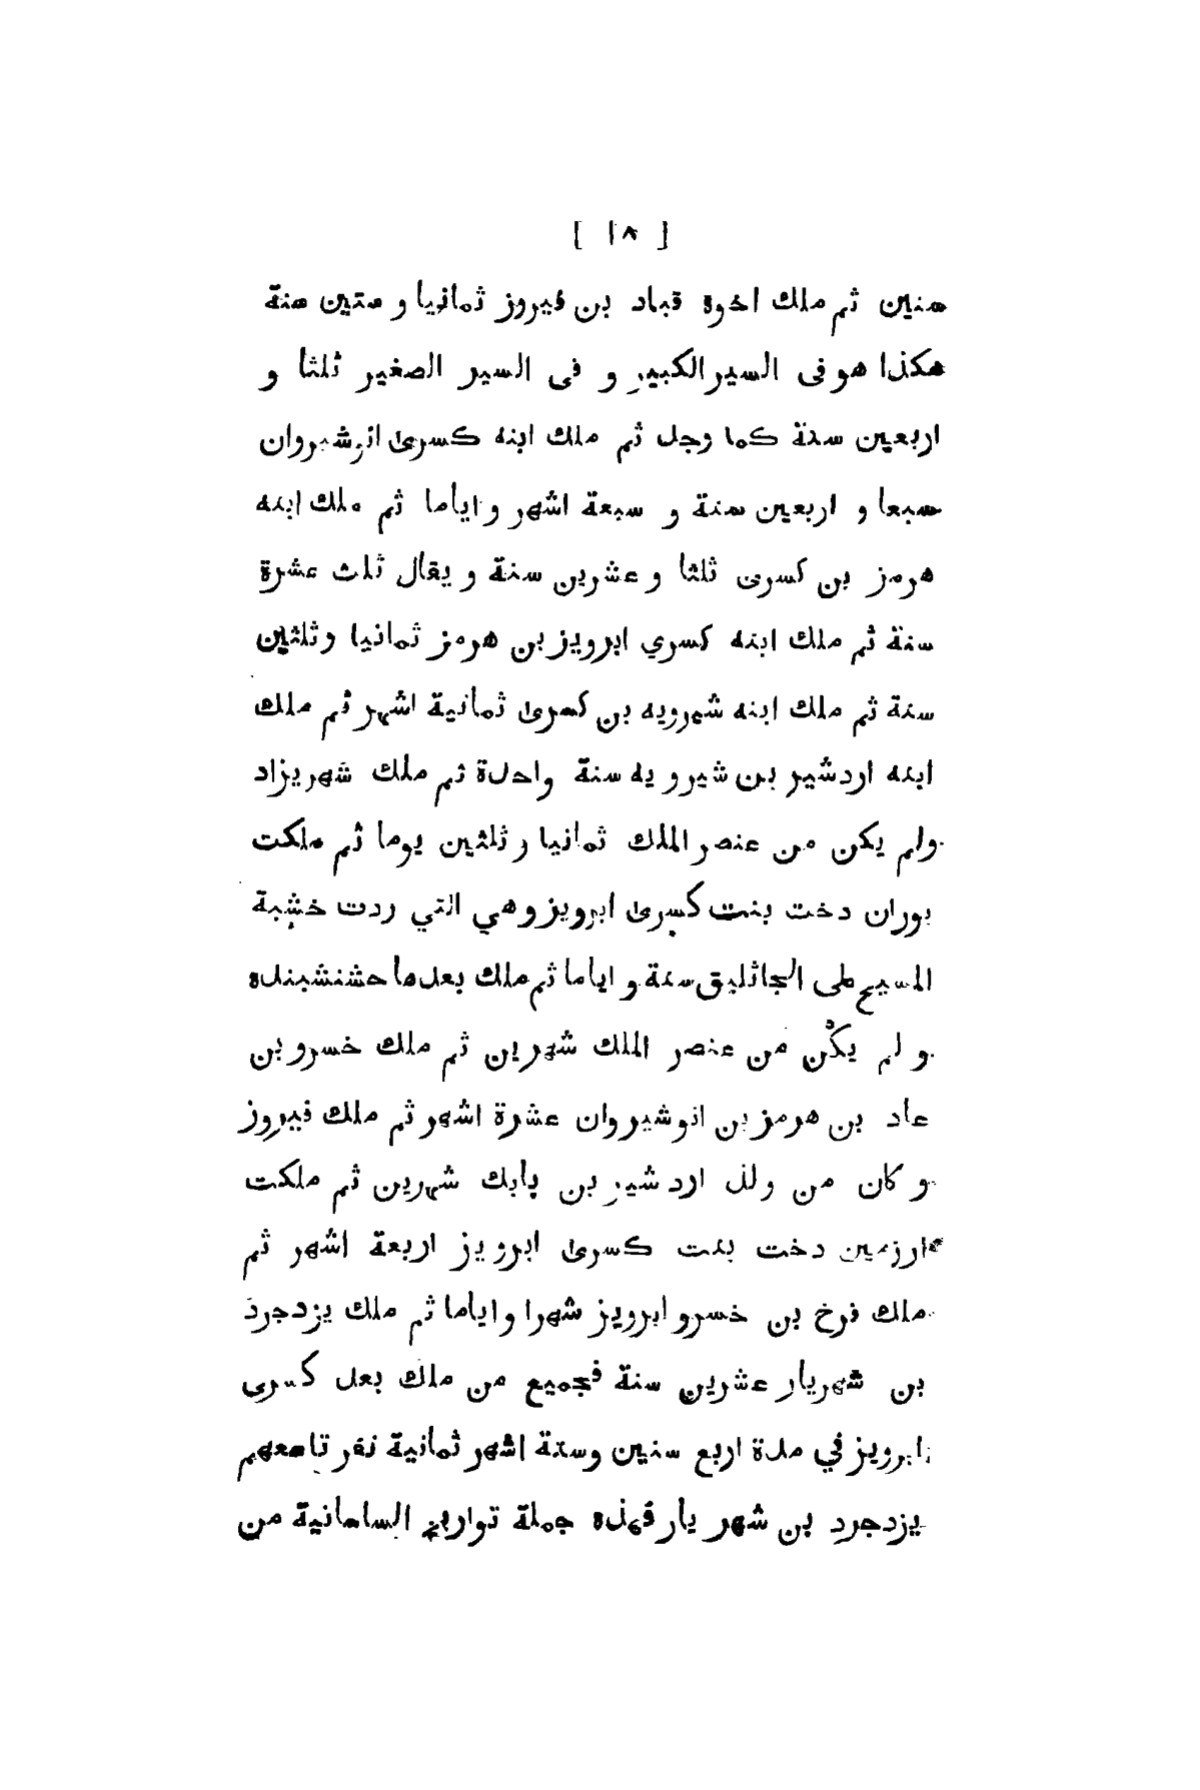 [ ١٨ ]
سنين ثم ملك اخوة قباد بن فيروز ثمانيا و ستين سنة
هكذا هو فى السير الكبير و فى السير الصغير ثلثا و
اربعين سنة كما وجد ثم ملك ابنه كسرى انوشيروان
سبعا و اربعين سنة و سبعة اشهر و اياما ثم ملك ابنه
هرمز بن كسرى ثلثا و عشرين سنة و يقال ثلث عشرة
سنة ثم ملك ابنه كسري ابرويز بن هرمز ثمانيا و ثلثين
سنة ثم ملك ابنه شيرويه بن كسرى ثمانية اشهر ثم ملك
ابنه اردشير بن شيرويه سنة واحدة ثم ملك شهريزاد
ولم يكن من عنصر الملك ثمانيا و ثلثين يوما ثم ملكت
بوران دخت بنت كسرى ابرويز وهي التي ردت خشبة
المسيح على الجاثليق سنة و اياما ثم ملك بعدها حشنشبنده
و لم يكن من عنصر الملك شهرين ثم ملك خسرو بن
عاد بن هرمز بن انوشيروان عشرة اشهر ثم ملك فيروز
و كان من ولد اردشير بن پابك شهرين ثم ملكت
ارزمين دخت بنت كسرى ابرويز اربعة اشهر ثم
ملك فرخ بن خسرو ابرويز شهرا و اياما ثم ملك يزدجرد
بن شهريار عشرين سنة فجميع من ملك بعد كسرى
ابرويز في مدة اربع سنين وستة اشهر ثمانية نفر تاسعهم
يزدجرد بن شهريار فهذه جملة تواريخ الساسانية من